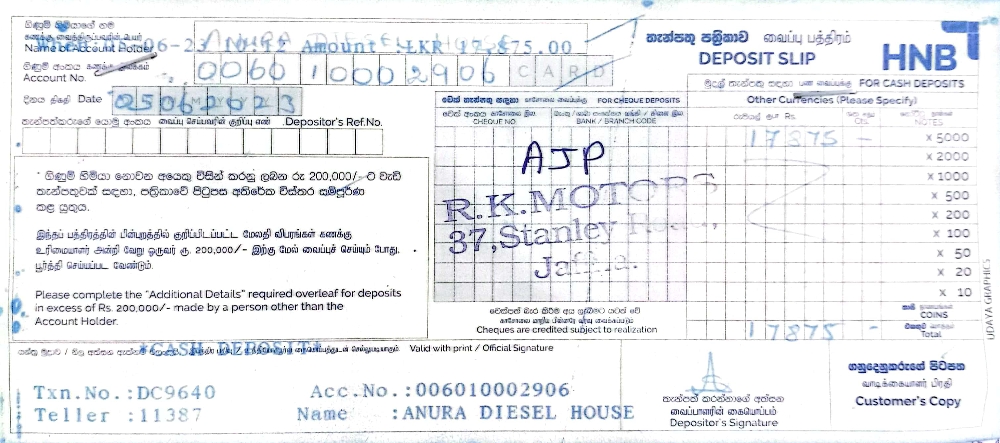 ගිණුම් හිමියාගේ නම
Name of Account Holder
06-23 Amount :LKR 17,875.00
ගිණුම් අංකය கணக்கு இலக்கம்
Account No.
0060 1000 2906 CARD
දිනය திகதி Date 25062023
තැන්පත්කරුගේ යොමු අංකය வைப்பு செய்பவரின் குறிப்பு எண் Depositor's Ref.No.
තැන්පතු පත්‍රිකාව வைப்பு பத்திரம்
DEPOSIT SLIP
HNB
' ගිණුම් හිමියා නොවන අයෙකු විසින් කරනු ලබන රු 200,000/- ට වැඩි
තැන්පතුවක් සඳහා, පත්‍රිකාවේ පිටුපස අතිරේක විස්තර සම්පූර්ණ
කළ යුතුය.
இந்தப் பத்திரத்தின் பின்புறத்தில் குறிப்பிடப்பட்ட மேலதி விபரங்கள் கணக்கு
உரிமையாளர் அன்றி வேறு ஒருவர் ரூ. 200,000/- இற்கு மேல் வைப்புச் செய்யும் போது.
பூர்த்தி செய்யப்பட வேண்டும்.
Please complete the "Additional Details" required overleaf for deposits
in excess of Rs. 200,000/- made by a person other than the
Account Holder.
චෙක් තැන්පතු සඳහා காசோலை வைப்புக்கு FOR CHEQUE DEPOSITS
CHEQUE NO
BANK / BRANCH CODE
AJP
R.K.MOTORS
37,Stanley Road,
Jaffna.
චෙක්පත් බැර කිරීම අය ලැබීමට යටත් වේ
Cheques are credited subject to realization
මුදල් තැන්පතු සඳහා பண வைப்புக்கு FOR CASH DEPOSITS
Other Currencies (Please Specify)
රුපියල් ரூபா Rs
NOTES
17875 -
x 5000
x 2000
x 1000
x 500
x 200
x 100
x 50
x 20
x 10
COINS
17875 -
Total
UDAYA GRAPHICS
*CASH DEPOSIT*
Valid with print / Official Signature
Txn.No.:DC9640 Acc.No.:006010002906
Teller :11387 Name :ANURA DIESEL HOUSE
තැන්පත් කරන්නාගේ අත්සන
வைப்பாளரின் கையொப்பம்
Depositor's Signature
ගනුදෙනුකරුගේ පිටපත
வாடிக்கையாளர் பிரதி
Customer's Copy